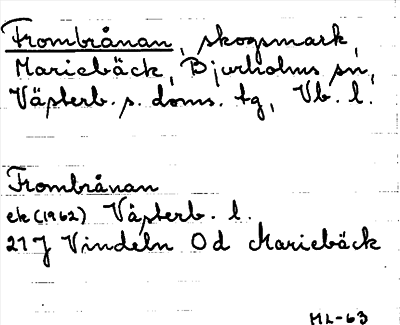 Frombrånan, skogsmark,
Mariebäck, Bjurholms sn,
Västerb. s. doms. tg, Vb. l.
Frombrånan
ek (1962) Västerb. l.
21J Vindeln 0d Mariebäck
ML-63